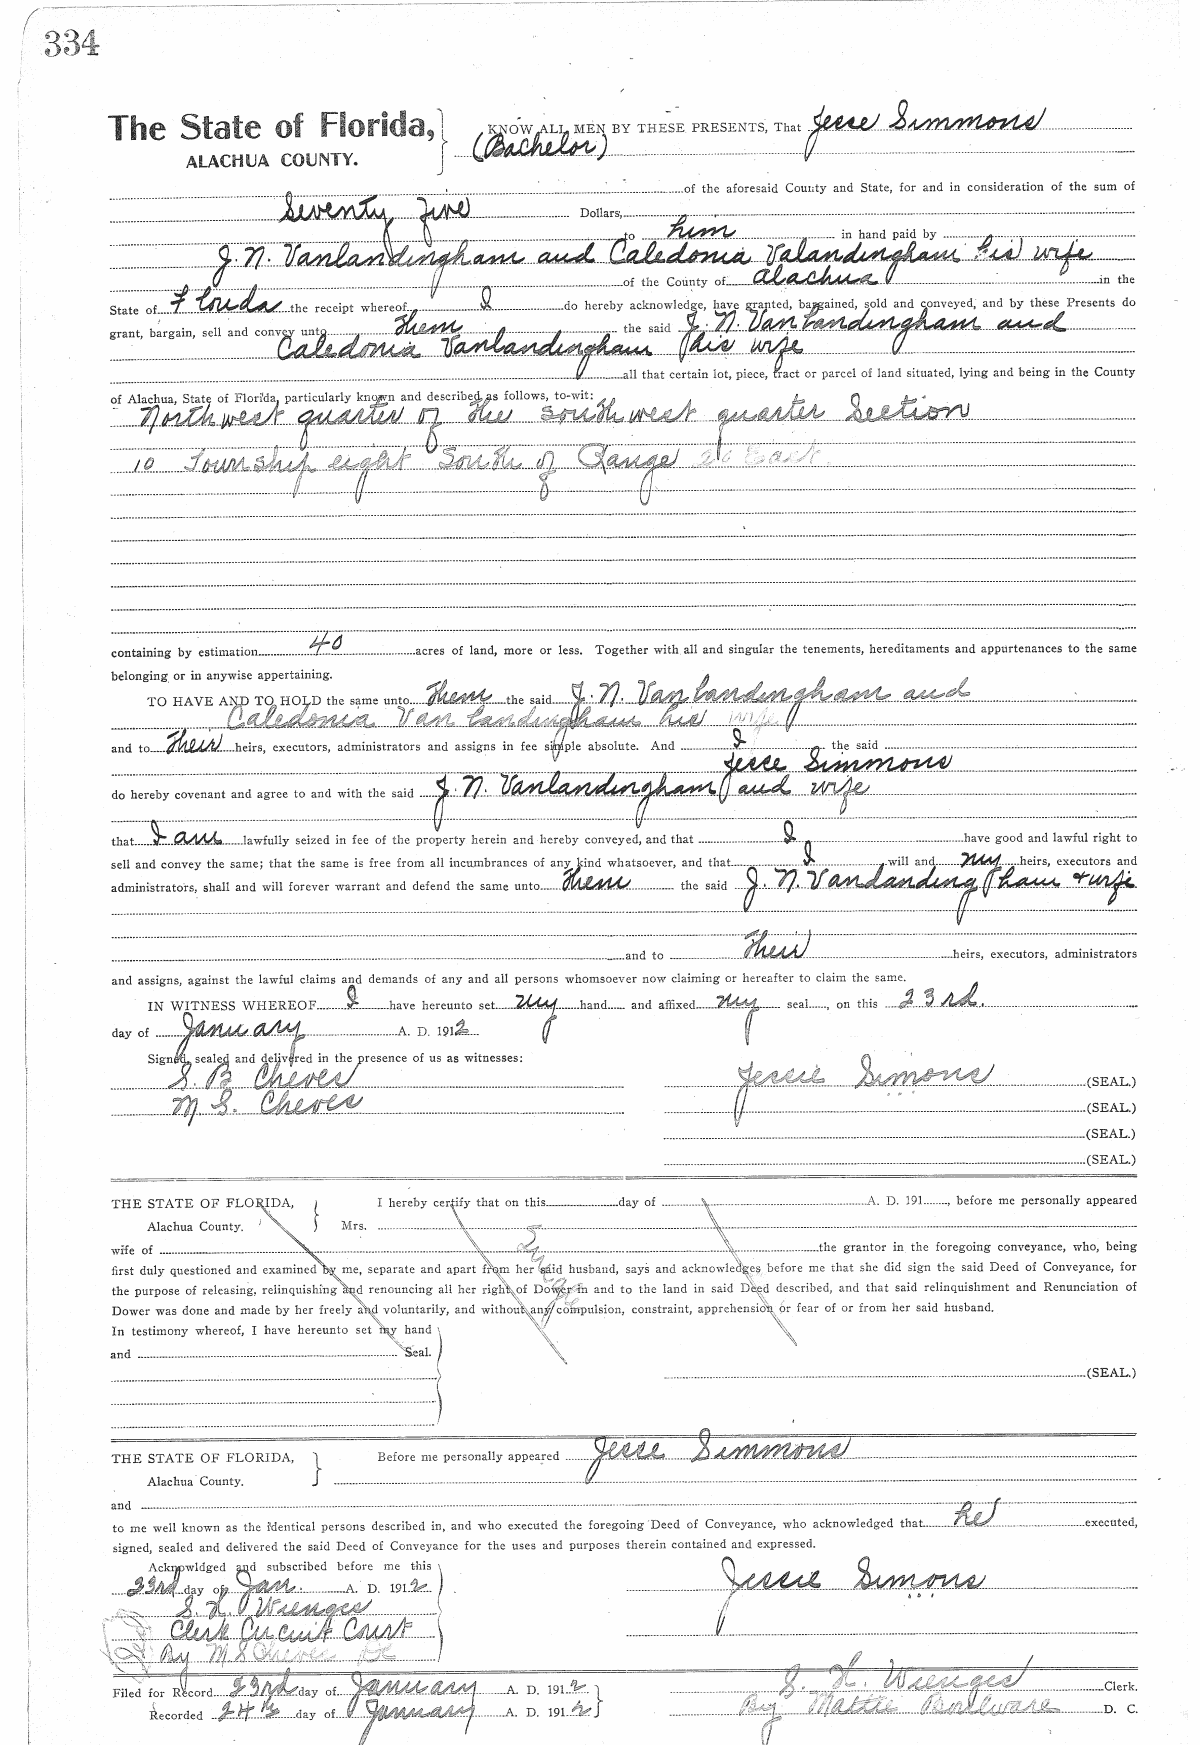 334
The State of Florida,
ALACHUA COUNTY.
KNOW ALL MEN BY THESE PRESENTS, That Jesse Simmons
(Bachelor)
of the aforesaid County and State, for and in consideration of the sum of
Seventy five Dollars,
to him in hand paid by
J. N. Vanlandingham and Caledonia Valandingham his wife
of the County of Alachua in the
State of Florida the receipt whereof I do hereby acknowledge, have granted, bargained, sold and conveyed, and by these Presents do
grant, bargain, sell and convey unto them the said J. N. Van Landingham and
Caledonia Vanlandingham his wife
all that certain lot, piece, tract or parcel of land situated, lying and being in the County
of Alachua, State of Florida, particularly known and described as follows, to-wit:
Northwest quarter of the southwest quarter Section
10 Township eight South of Range East.
containing by estimation 40 acres of land, more or less. Together with all and singular the tenements, hereditaments and appurtenances to the same
belonging or in anywise appertaining.
TO HAVE AND TO HOLD the same unto them the said J. N. Van Landingham and
Caledonia Van Landingham his wife
and to Their heirs, executors, administrators and assigns in fee simple absolute. And I the said
Jesse Simmons
do hereby covenant and agree to and with the said J. N. Vanlandingham and wife
that I am lawfully seized in fee of the property herein and hereby conveyed, and that I have good and lawful right to
sell and convey the same; that the same is free from all incumbrances of any kind whatsoever, and that I will and my heirs, executors and
administrators, shall and will forever warrant and defend the same unto them the said J. N. Vandandingham & wife
and to Their heirs, executors, administrators
and assigns, against the lawful claims and demands of any and all persons whomsoever now claiming or hereafter to claim the same.
IN WITNESS WHEREOF I have hereunto set my hand and affixed my seal, on this 23rd.
day of January A. D. 1912
Signed, sealed and delivered in the presence of us as witnesses:
S. B Cheves
M. S. Cheves
Jessie Simons (SEAL.)
(SEAL.)
(SEAL.)
(SEAL.)
THE STATE OF FLORIDA,
Alachua County.
I hereby certify that on this day of A. D. 191 , before me personally appeared
Mrs.
wife of the grantor in the foregoing conveyance, who, being
first duly questioned and examined by me, separate and apart from her said husband, says and acknowledges before me that she did sign the said Deed of Conveyance, for
the purpose of releasing, relinquishing and renouncing all her right of Dower in and to the land in said Deed described, and that said relinquishment and Renunciation of
Dower was done and made by her freely and voluntarily, and without any compulsion, constraint, apprehension or fear of or from her said husband.
Single
In testimony whereof, I have hereunto set my hand
and Seal.
(SEAL.)
THE STATE OF FLORIDA,
Alachua County.
Before me personally appeared Jesse Simmons
and
to me well known as the identical persons described in, and who executed the foregoing Deed of Conveyance, who acknowledged that he executed,
signed, sealed and delivered the said Deed of Conveyance for the uses and purposes therein contained and expressed.
Acknowldged and subscribed before me this
23rd day of Jan. A. D. 1912
Jessie Simons
S. H. Wienges
Clerk Circuit Court
By M S Cheves DC
Filed for Record 23rd day of January A. D. 1912
S. H. Wienges Clerk.
Recorded 24th day of January A. D. 1912
By Mattie Boulware D. C.